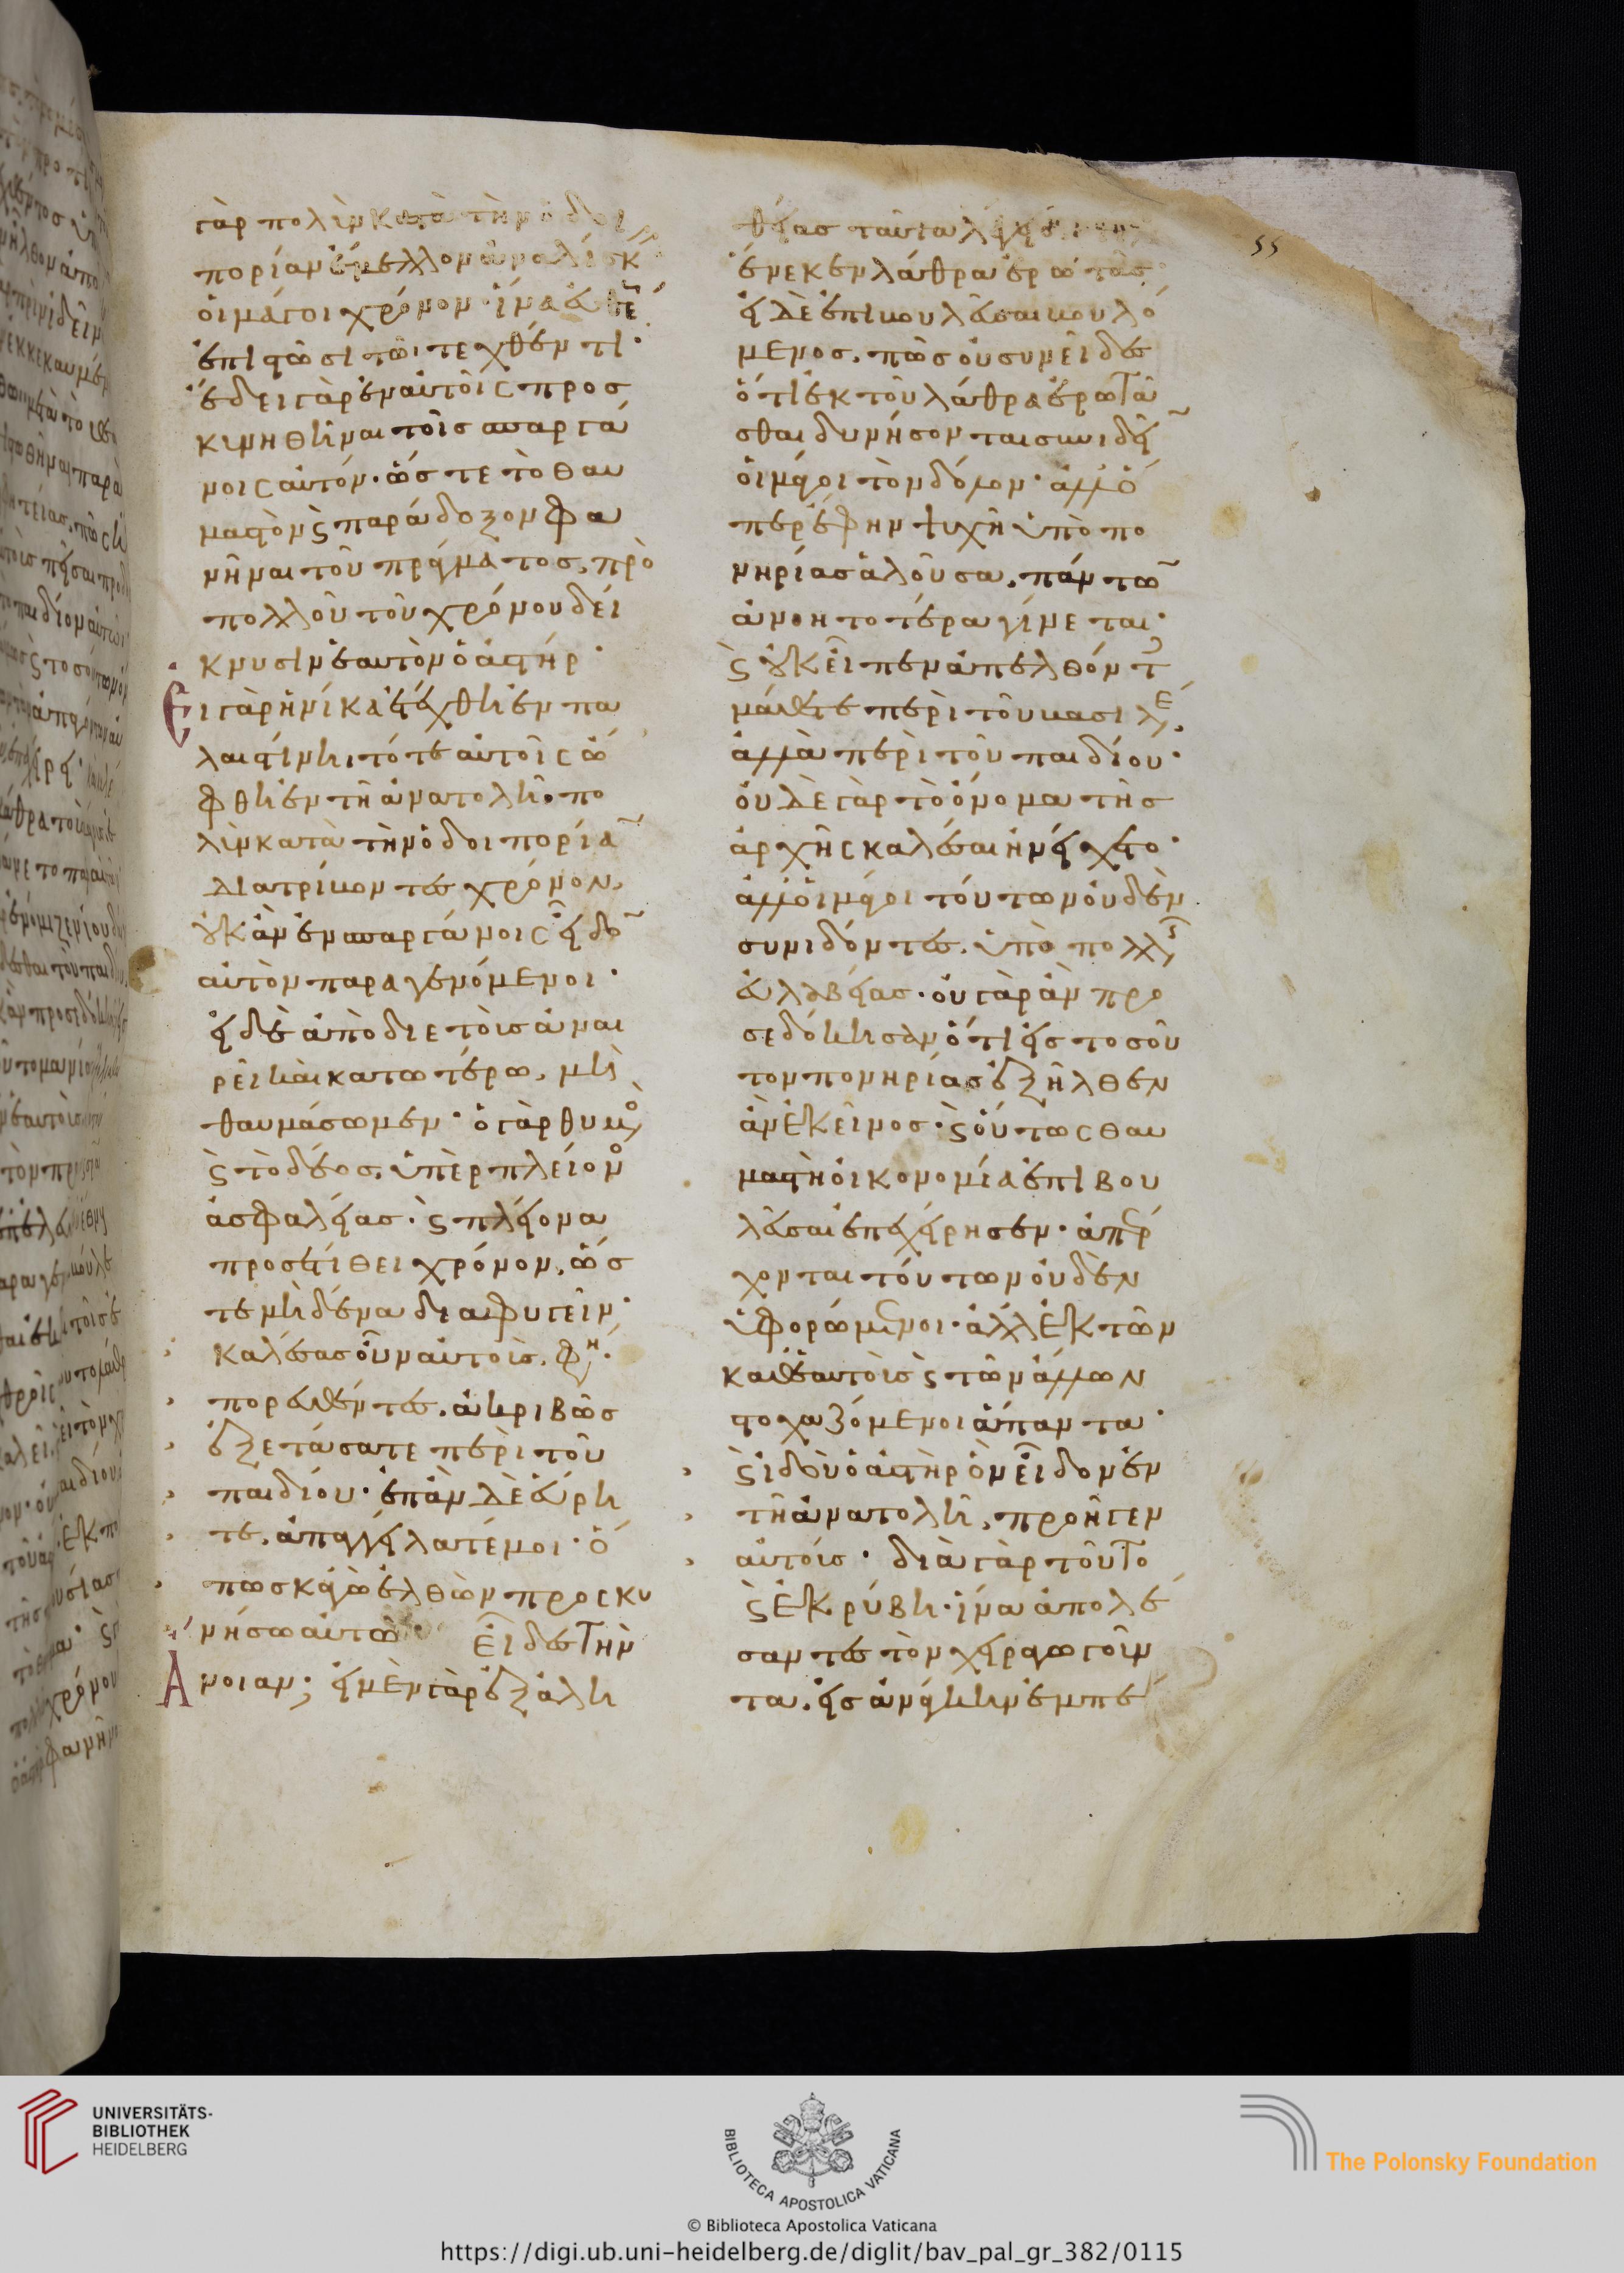 γὰρ πολὺν κατὰ τὴν ὁδοι
πορίαν ἔμελλον ἀναλίσκ
οἱ μάγοι χρόνον· ἵνα εὐθέ
ἐπιστῶσι τῶι τεχθέντι·
ἔδει γὰρ ἐν αὐτοῖς προσ
κυνηθῆναι τοῖς σπαργά
νοις αὐτόν. ὥστε τὸ θαυ
μαστὸν ϛ παράδοξον φα
νῆναι τοῦ πράγματος, πρὸ
πολλοῦ τοῦ χρόνου δεί
κνυσιν ἑαυτὸν ὁ ἀστήρ·
Εἰ γὰρ ἡνίκα ἐτέχθη ἐν πα
λαιστίνη, τότε αὐτοῖς ὤ
φθη ἐν τῆ ἀνατολῆ, πο
λὺν κατὰ τὴν ὁδοιπορίᾱ
διατρίβοντες χρόνον,
οὐκ ἂν ἐν σπαργάνοις εἶδο̄
αὐτὸν παραγενόμενοι·
εἰ δὲ ἀπὸ διετοῦς ἀναι
ρεῖ καὶ κατωτέρω, μὴ
θαυμάσωμεν· ὁ γὰρ θυμο
ϛ τὸ δέος, ὑπὲρ πλείον
ἀσφαλείας· ϛ πλείονα
προσετίθει χρόνον, ὥσ
τε μηδένα διαφυγεῖν·
Καλέσας οὖν αὐτοὺς, φη·
πορευθέντες, ἀκριβῶς
ἐξετάσατε περὶ τοῦ
παιδίου· ἐπὰν δὲ εὕρη
τε, ἀπαγγείλατέ μοι· ὅ
πως κἀγὼ ἐλθὼν προσκυ
νήσω αὐτῶ· Εἶδες τὴν
Ἄνοιαν; εἰ μὲν γὰρ ἐξ ἀλη
55
θείας ταῦτα λέγεις
ἕνεκεν λάθρα ἐρωτᾶς·
εἰ δὲ ἐπιβουλεῦσαι βουλό
μενος, πῶς οὐ συνεῖδες
ὅτι ἐκ τοῦ λάθρα ἐρωτᾶ
σθαι δυνήσονται συνιδεῖ̄
οἱ μάγοι τὸν δόλον· ἀλλ' ὅ
περ ἔφην ψυχὴ ὑπὸ πο
νηρίας ἁλοῦσα, πάντω̄
ἀνοητοτέρα γίνεται·
ϛ οὐκ εἶπεν ἀπελθόντ
μάθετε περὶ τοῦ βασιλέ,
ἀλλὰ περὶ τοῦ παιδίου·
οὐδὲ γὰρ τὸ ὄνομα τῆς
ἀρχῆς καλέσαι ἠνείχετο·
ἀλλ' οἱ μάγοι τούτων οὐδὲν
συνιδόντες, ὑπὸ πολλῆς
εὐλαβείας· οὐ γὰρ ἂν προ
σεδόκησαν ὅτι εἰς τοσοῦ
τον πονηρίας ἐξῆλθεν
ἂν ἐκεῖνος· ϛ οὕτως θαυ
μαστῆ οἰκονομία ἐπιβου
λεῦσαι ἐπεχείρησεν· ἀπέρ
χονται τούτων οὐδὲν
ὑφορώμενοι· ἀλλ' ἐκ τῶν
καθ' ἑαυτοὺς ϛ τῶν ἄλλων
στοχαζόμενοι ἅπαντα·
ϛ ἰδοὺ ὁ ἀστὴρ ὃν εἶδον ἐν
τῆ ἀνατολῆ, προῆγεν
αὐτούς· διὰ γὰρ τοῦτο
ϛ ἐκρύβη· ἵνα ἀπολέ
σαντες τὸν χειραγωγοῦν
τα, εἰς ἀνάγκην ἐμπε
UNIVERSITÄTS-
BIBLIOTHEK
HEIDELBERG
BIBLIOTECA APOSTOLICA VATICANA
© Biblioteca Apostolica Vaticana
The Polonsky Foundation
https://digi.ub.uni-heidelberg.de/diglit/bav_pal_gr_382/0115